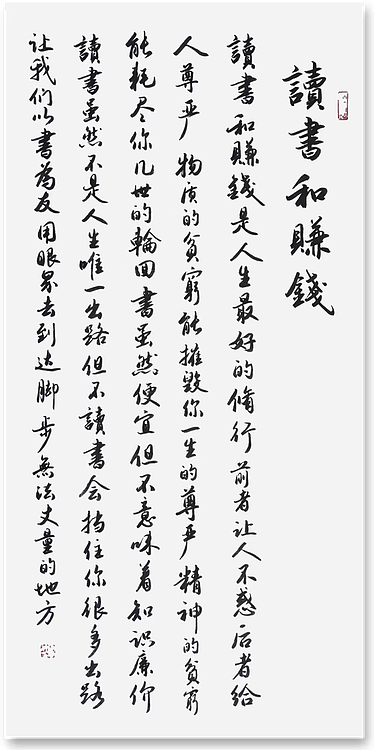 讀書和賺錢
讀書和賺錢是人生最好的脩行前者让人不惑后者给
人尊严物质的貧窮能摧毀你一生的尊严精神的貧窮
能耗尽你几世的輪回書虽然便宜但不意味着知识廉价
讀書虽然不是人生唯一出路但不讀書会挡住你很多出路
让我们以書為友用眼界去到达脚步無法丈量的地方